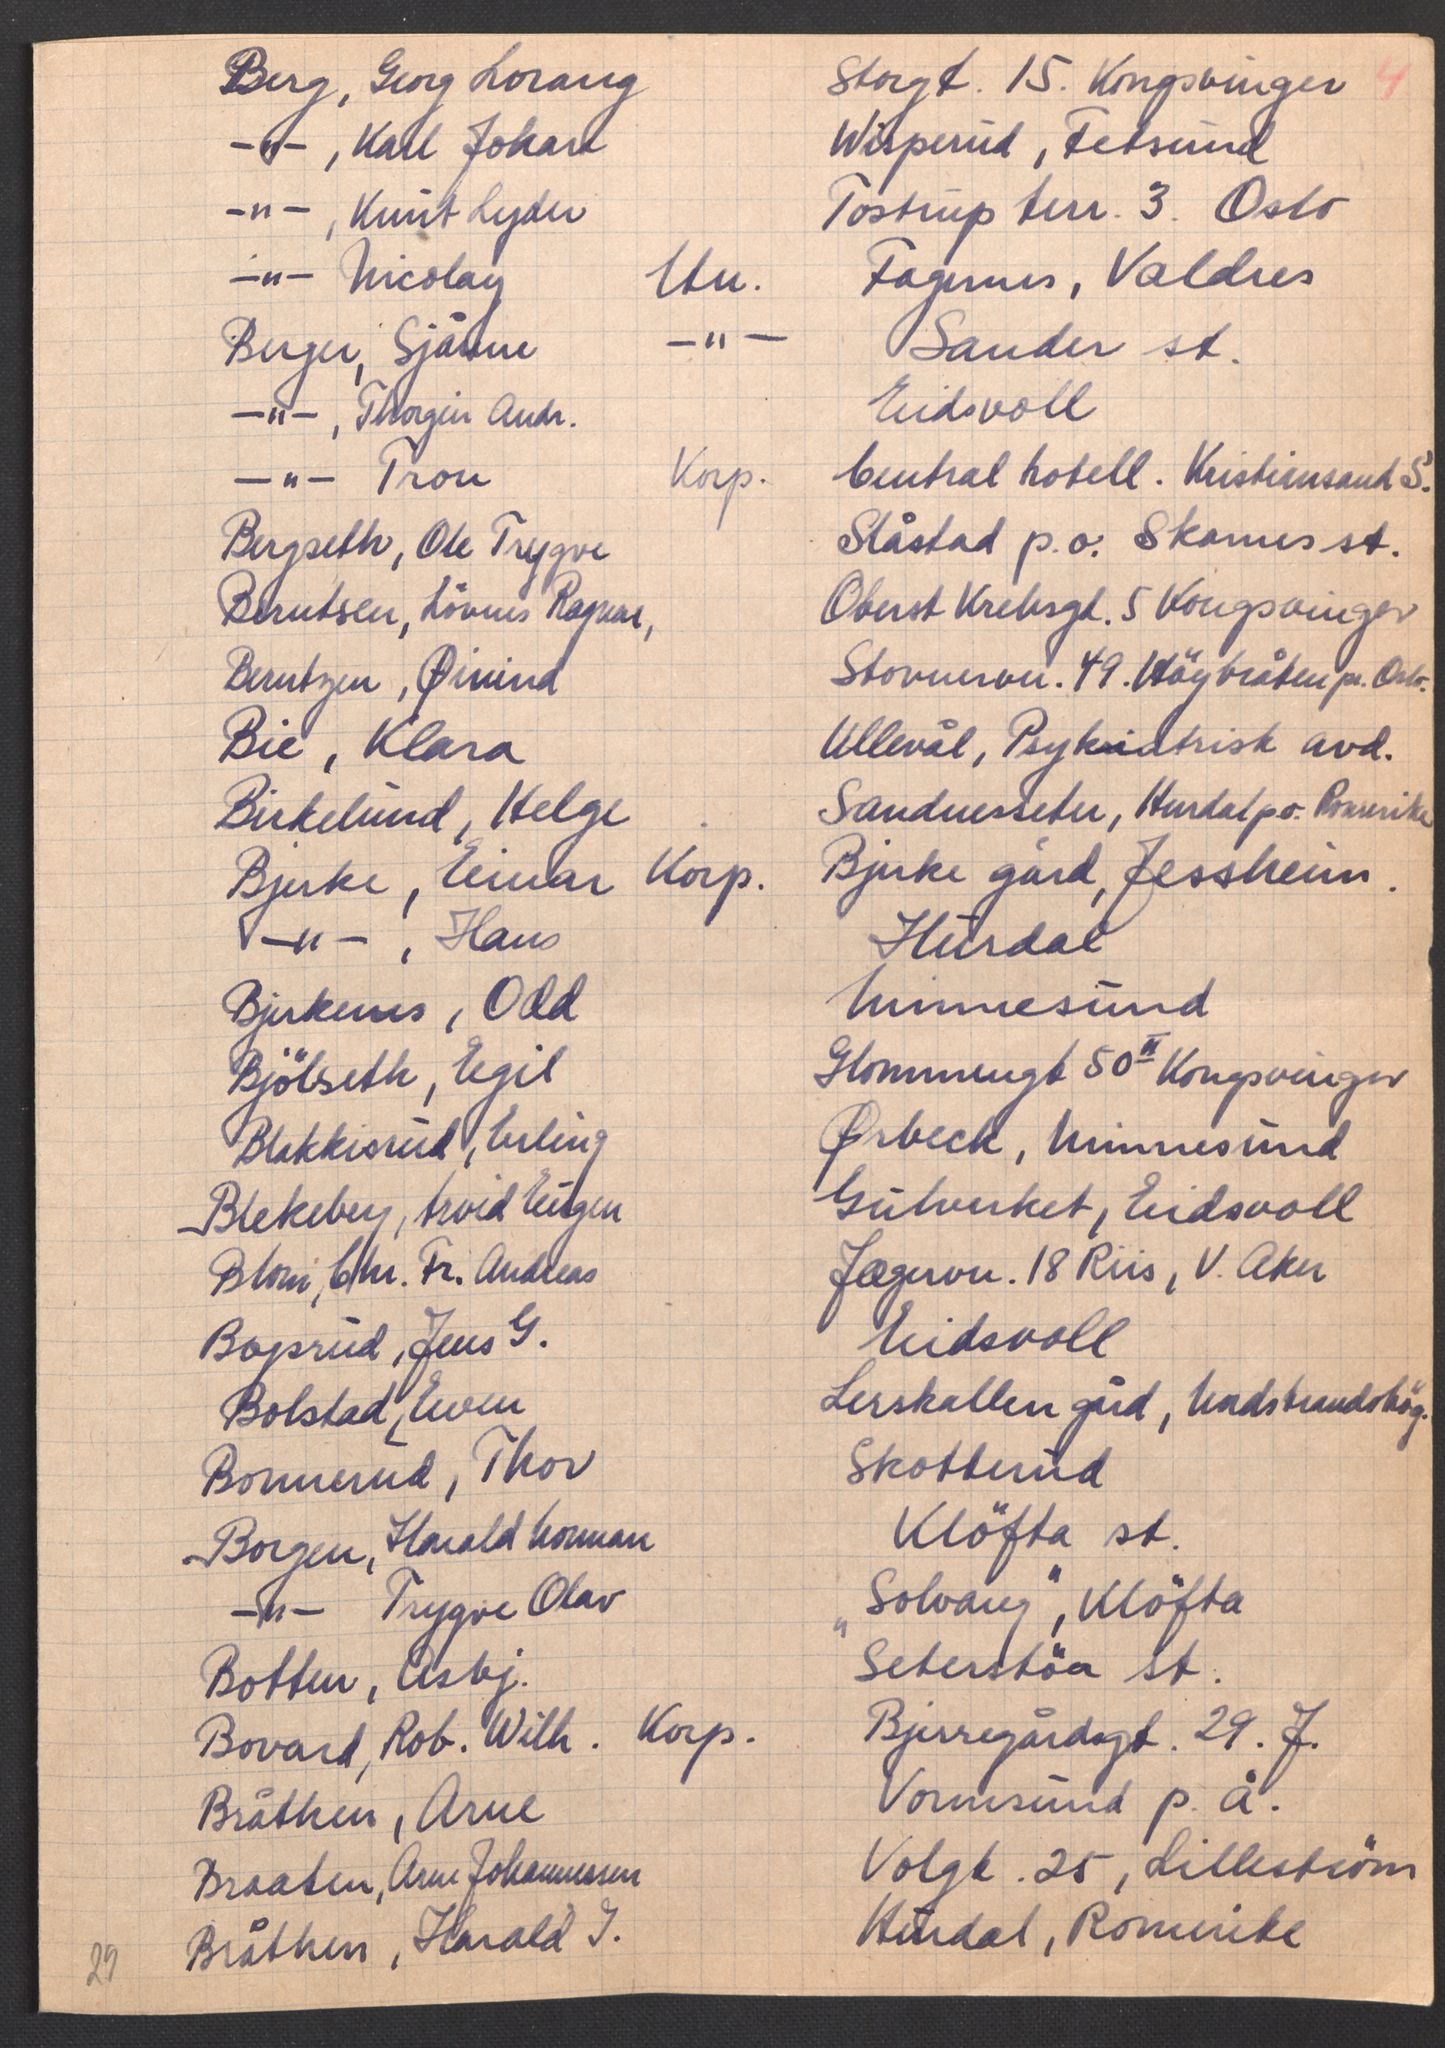 Berg, Georg Lorang Storgt. 15. Kongsvinger 4
-"-, Karl Johan Wisperud, Fetsund
-"-, Knut Lyder Tostrup terr. 3. Oslo
-"- Nicolay Ltn. Fagernes, Valdres
Berger, Sjänne -"- Sander st.
-"-, Thorgeir Andr. Eidsvoll
-"- Tron Korp. Central hotell. Kristiansand S.
Bergseth, Ole Trygve Slåstad p.o. Skarnes st.
Berntsen, Ragnar, Oberst Krebsgt. 5 Kongsvinger
Berntzen, Øivind Stovnervn. 49. Höybråten pr. Oslo.
Bie, Klara Ullevål, Psykiatrisk avd.
Birkelund, Helge Sandnesseter, Hurdal p.o. Romerike
Bjerke, Einar Korp. Bjerke gård, Jessheim.
-"-, Hans Hurdal
Bjerkenes, Odd Minnesund
Bjölseth, Egil Glommengt 50 II Kongsvinger
Blakkisrud, Erling Ørbeck, Minnesund
Blekeberg, Arvid Eugen Gulverket, Eidsvoll
Blom, Chr. Fr. Andreas Jægervn. 18 Riis, V. Aker
Bogsrud, Jens G. Eidsvoll
Bolstad, Even Lerskallen gård, Nordstrandshög.
Bonnerud, Thor Skotterud
Borgen, Harald Norman Klöfta st.
-"- Trygve Olav "Solvang", Klöfta
Botten, Asbj. Seterstöa st.
Bovard, Rob. Wilh. Korp. Bjerregårdsgt. 29. J.
Bråthen, Arne Vormsund p. å.
Braaten, Arne Johannessen Volgt. 25, Lilleström
Bråthen, Harald J. Hurdal, Romerike
29